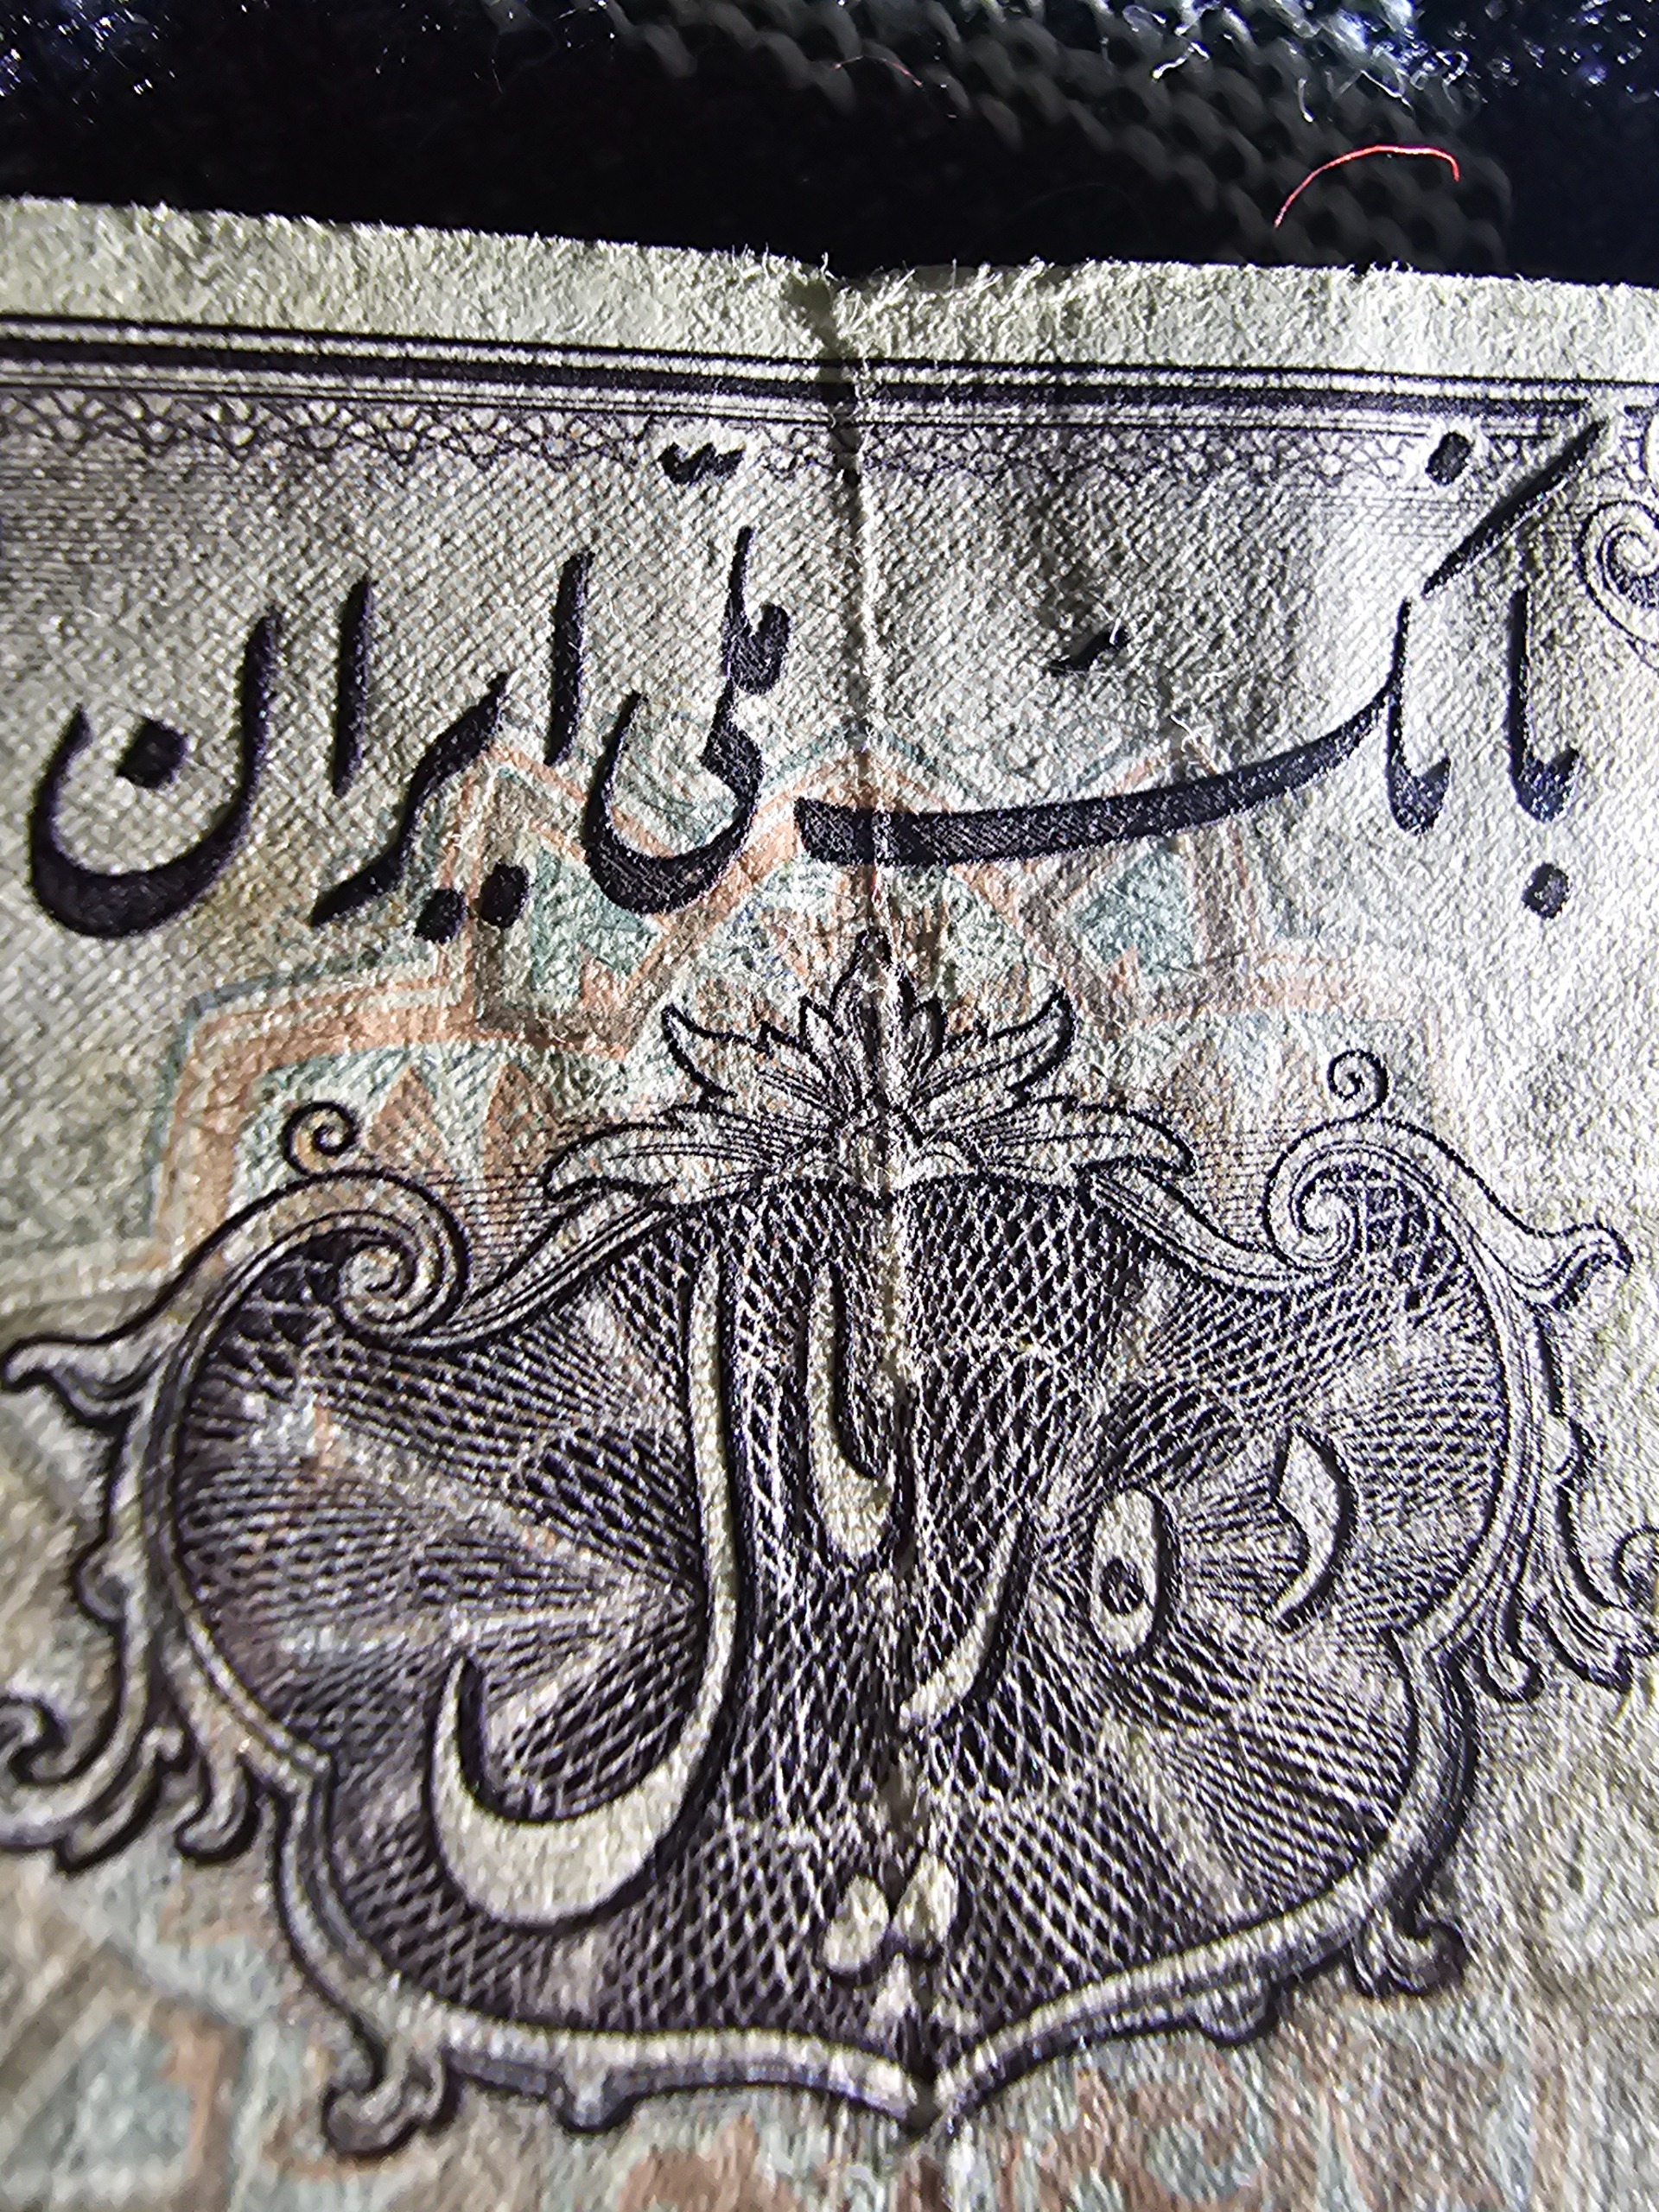 بانک ملّی ایران
ده ریال